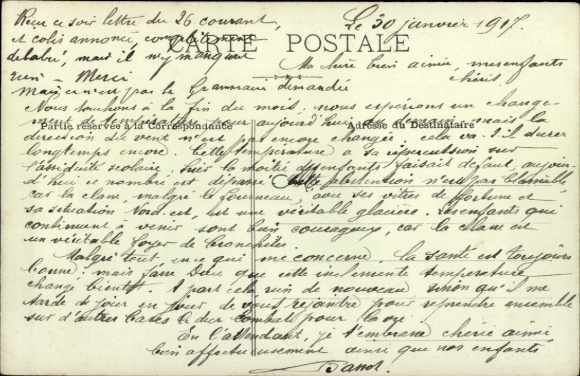 Reçu ce soir lettre du 26 courant,
et colis annoncé, complètement
délabré, mais il n'y manquait
rien - Merci
Le 30 janvier 1917.
CARTE POSTALE
Ma chère bien aimée, mes enfants
chéris
pas le Grammaire demandée
Nous touchons à la fin du mois, nous espérions un change-
ment de température pour aujourd'hui ou demain mais la
Partie réservée à la Correspondance
Adresse du Destinataire
direction du vent n'est pas encore changée cela va-t-il durer
longtemps encore. Cette température a sa répercussion sur
l'assiduité scolaire, hier la moitié des enfants faisait défaut, aujour-
d'hui ce nombre est dépassé. Cette abstention n'est pas blâmable
car la classe, malgré le fourneau, avec ses vitres de fortune et
sa situation Nord-est, est une véritable glacière. Les enfants qui
continuent à venir sont bien courageux, car la classe est
un véritable foyer de bronchites.
Malgré tout, en ce qui me concerne, la santé est toujours
bonne; mais fasse Dieu que cette inclémente température
change bientôt. A part cela rien de nouveau sinon qu'il me
tarde de jour en jour de vous rejoindre pour reprendre ensemble
sur d'autres bases le dur combat pour la vie
En l'attendant, je t'embrasse chérie aimée
bien affectueusement ainsi que nos enfants